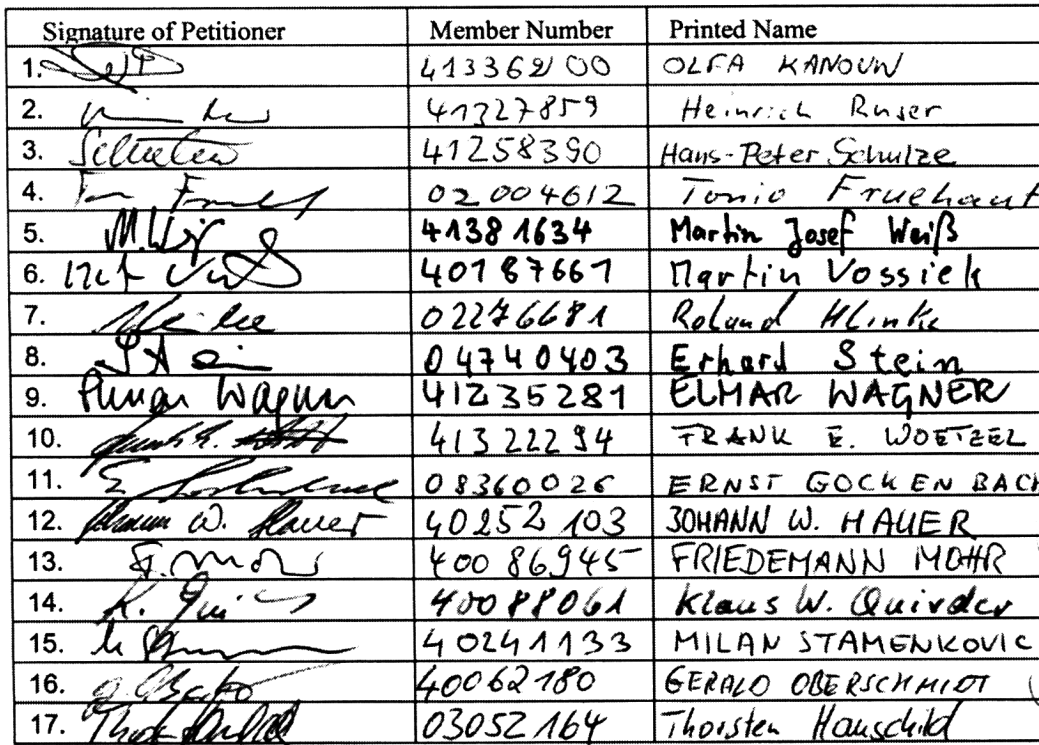 Signature of Petitioner Member Number Printed Name
1. 41336200 OLFA KANOUN
2. 41327859 Heinrich Ruser
3. Schulze 41258390 Hans-Peter Schulze
4. 02004612 Tonio Fruehauf
5. M. Weiß 41381634 Martin Josef Weiß
6. 40187661 Martin Vossiek
7. 02276681 Roland
8. Stein 04740403 Erhard Stein
9. Elmar Wagner 41235281 ELMAR WAGNER
10. 41322294 FRANK E. WOETZEL
11. E. Gockenbach 08360026 ERNST GOCKENBACH
12. Johann W. Hauer 40252103 JOHANN W. HAUER
13. F. Mohr 40086945 FRIEDEMANN MOHR
14. K. 40088061 Klaus W.
15. 40241133 MILAN STAMENKOVIC
16. 40062180 GERALD OBERSCHMIDT
17. 03052164 Thorsten Hauschild